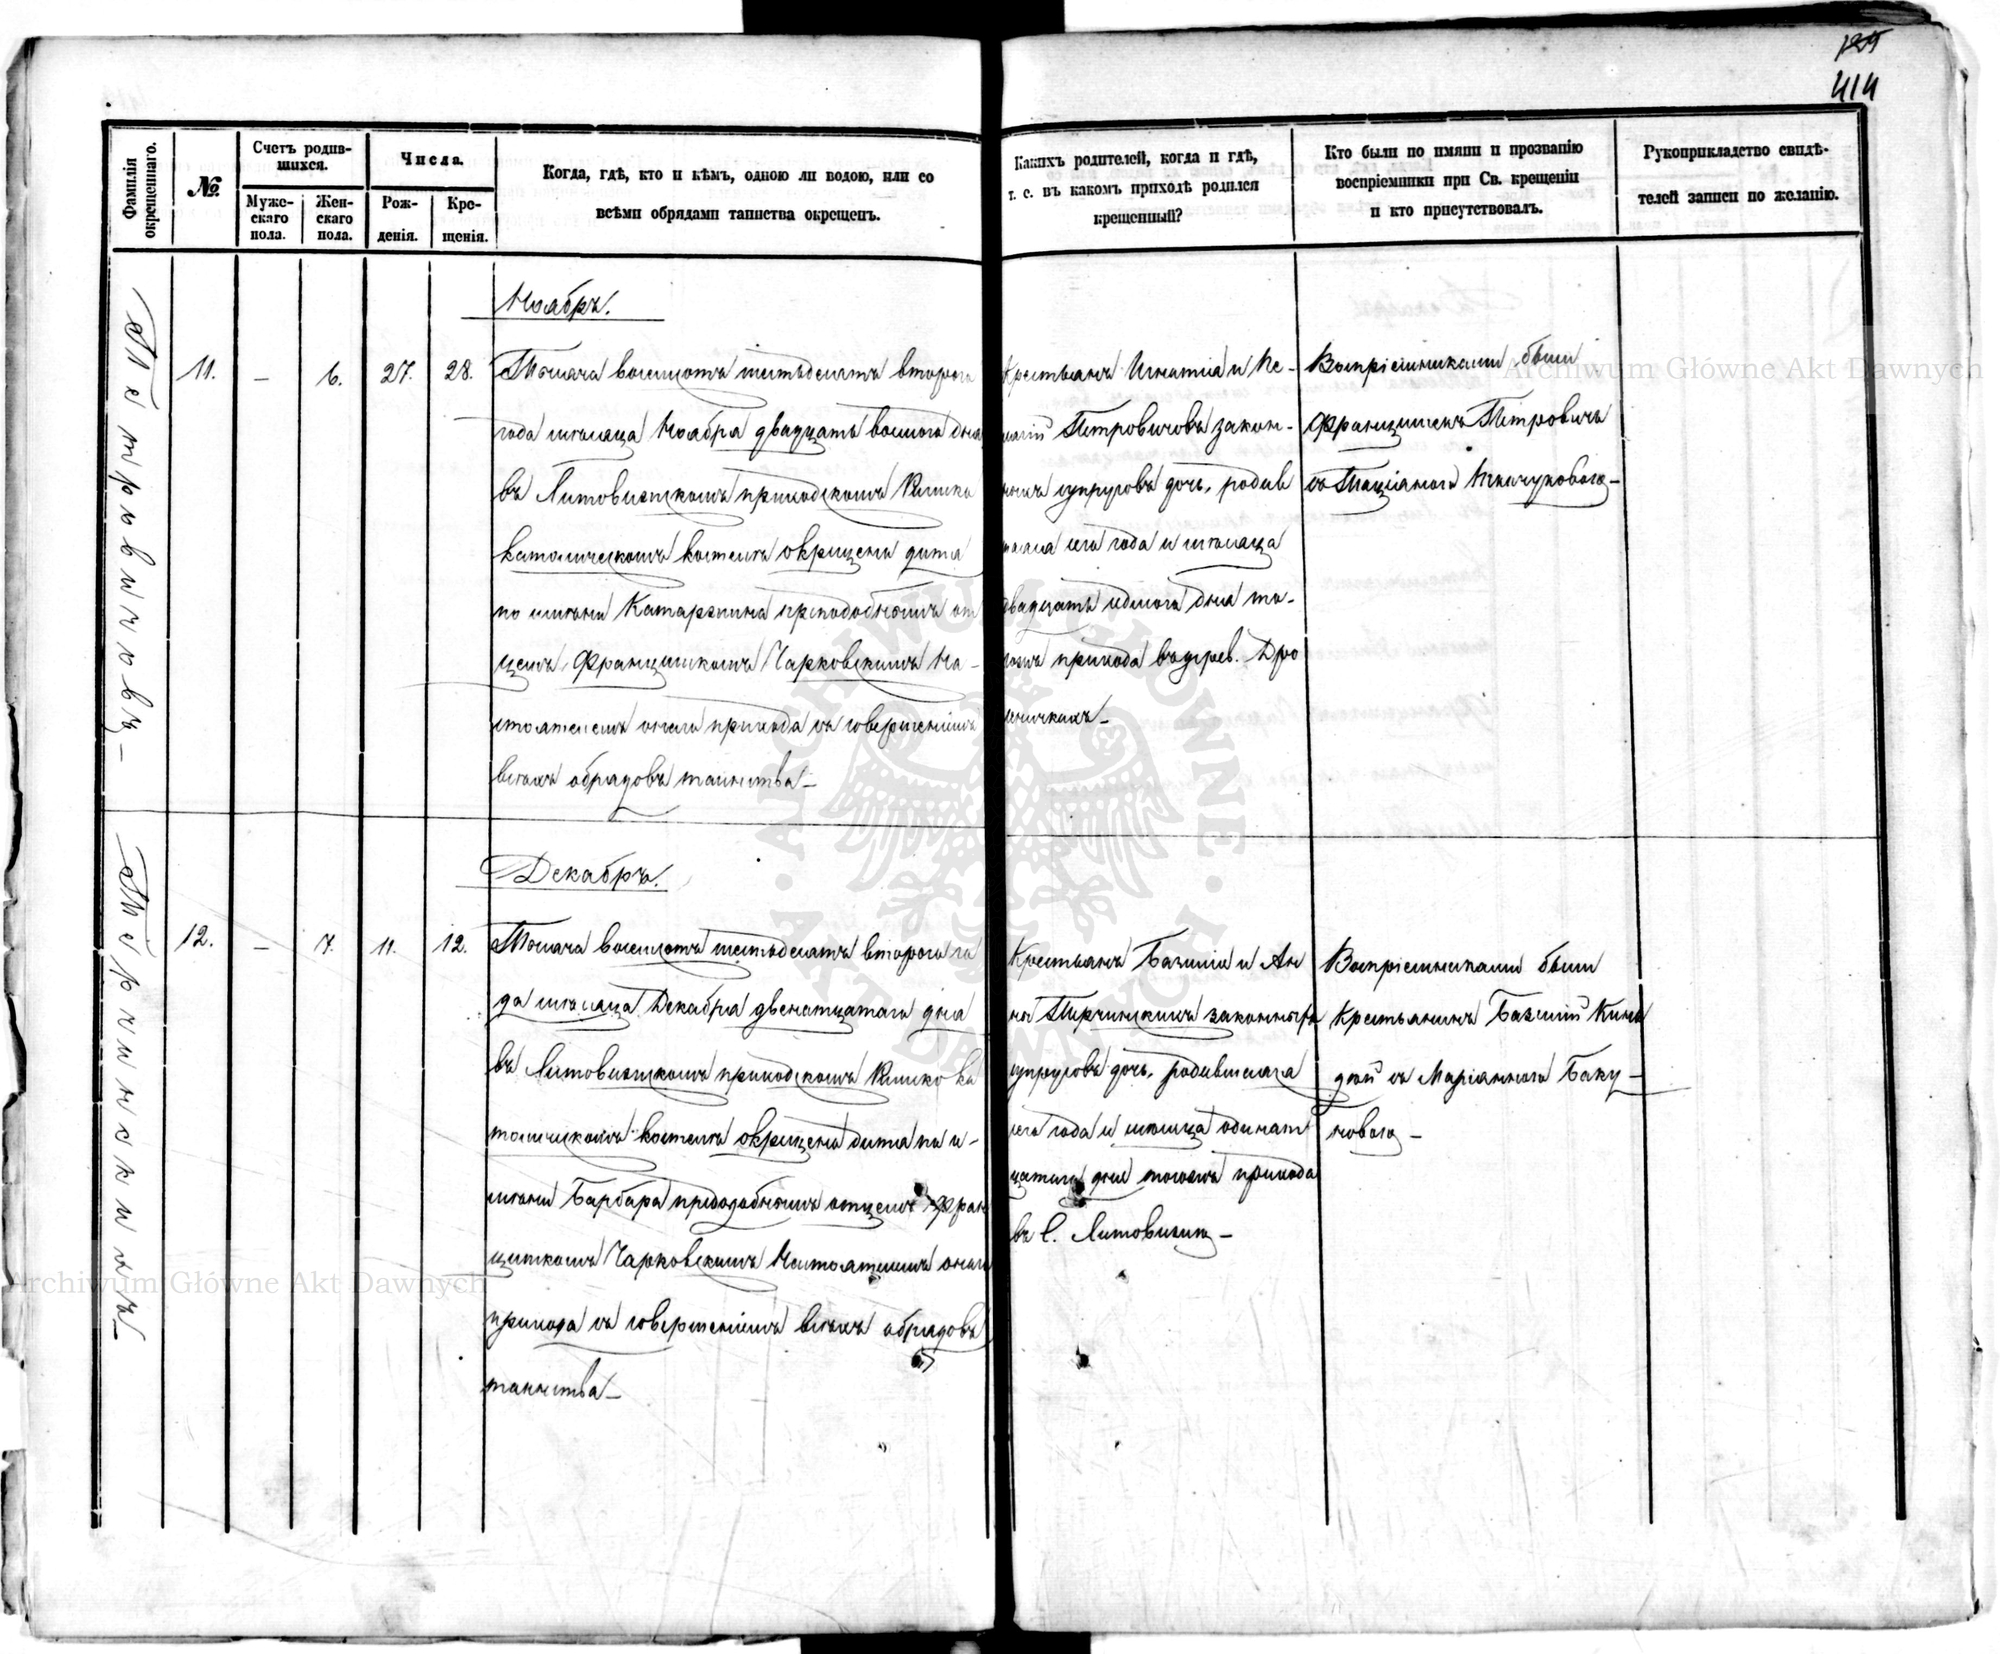 414
Фамилія окрещеннаго.
№
Счетъ родив-
шихся.
Муже-
скаго
пола.
Жен-
скаго
пола.
Числа.
Рож-
денія.
Кре-
щенія.
Когда, гдѣ, кто и кѣмъ, одною ли водою, или со
всѣми обрядами таинства окрещенъ.
Какихъ родителей, когда и гдѣ,
т. е. въ какомъ приходѣ родился
крещенный?
Кто были по имяни и прозванію
воспріемники при Св. крещеніи
и кто присутствовалъ.
Рукоприкладство свидѣ-
телей записи по желанію.
Петровичовъ–
11.
–
6.
27.
28.
Ноябрь.
Тысяча восемсотъ шестьдесятъ второго
года мѣсяца Ноября двадцать восмого дня
въ Литовискомъ приходскомъ Римско
католическомъ костелѣ окрещено дитя
по имени Катаржина преподобнымъ от
цемъ Францишкомъ Чарковскимъ На–
стоятелемъ онаго прихода съ совершеніемъ
всѣхъ обрядовъ таинства–
Крестьянъ Игнатія и Пе–
лагіи Петровичовъ закон–
ныхъ супруговъ дочь, родив
шаяся сего года и мѣсяца
двадцать седмого дня то–
гожъ прихода въ дерев.
Воспріемниками были
Францишекъ Петровичъ
съ
12.
–
7.
11.
12.
Декабрь.
Тысяча восемсотъ шестьдесятъ второго го
да мѣсяца Декабря двенатцатаго дня
въ Литовискомъ приходскомъ Римско ка
толическомъ костелѣ окрещено дитя по и–
мени Барбара преподобнымъ отцемъ Фран
цишкомъ Чарковскимъ Настоятелемъ онаго
прихода съ совершеніемъ всѣхъ обрядовъ
таинства–
Крестьянъ Базилія и Ан
ны законныхъ
супруговъ дочь, родившаяся
сего года и мѣсяца одинат
цатаго дня тогожъ прихода
въ с.
Воспріемниками были
Крестьянинъ Базилій
съ Маріанною Баку–
новою–
Archiwum Główne Akt Dawnych
Archiwum Główne Akt Dawnych
· ARCHIWUM GŁÓWNE · AKT DAWNYCH